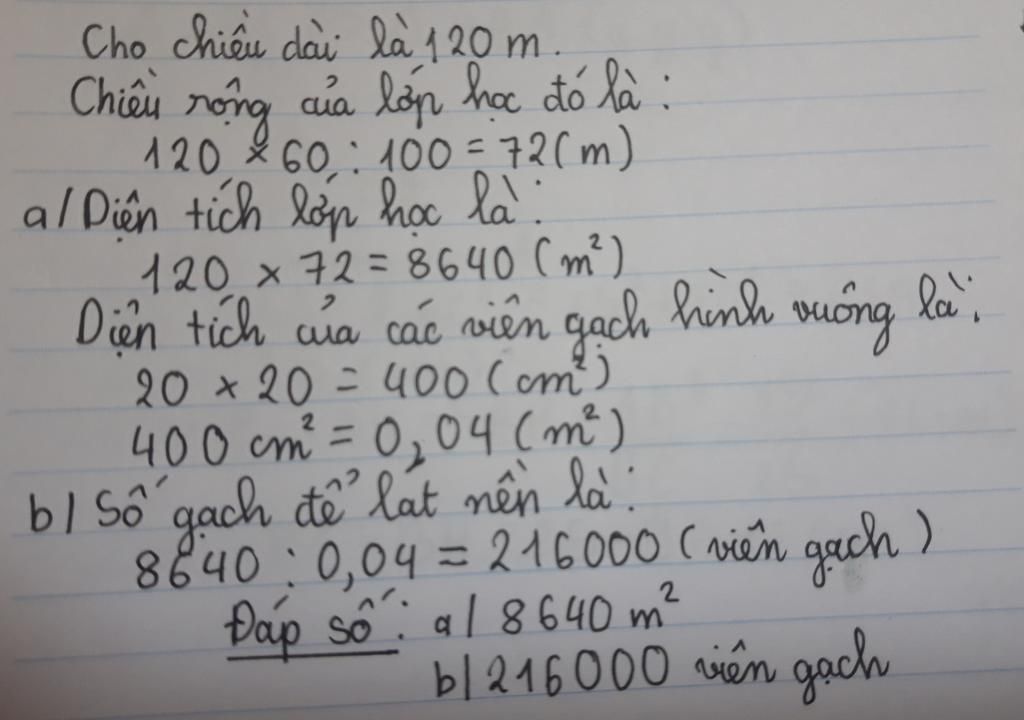 Cho chiều dài là 120 m.
Chiều rộng của lớp học đó là:
120 × 60 : 100 = 72 (m)
a/ Diện tích lớp học là:
120 × 72 = 8640 (m²)
Diện tích của các viên gạch hình vuông là:
20 × 20 = 400 (cm²)
400 cm² = 0,04 (m²)
b/ Số gạch để lát nền là:
8640 : 0,04 = 216000 (viên gạch)
Đáp số: a/ 8640 m²
b/ 216000 viên gạch